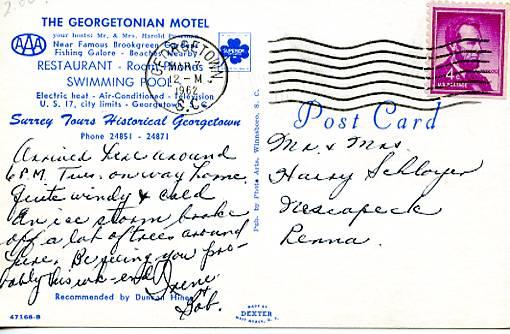 2.00
THE GEORGETONIAN MOTEL
your hosts: Mr. & Mrs. Harold
AAA
Near Famous Brookgreen Gardens
Fishing Galore - Beaches Nearby
SUPERIOR
RESTAURANT - Room Phones
SWIMMING POOL
Electric heat - Air-Conditioned - Television
U. S. 17, city limits - Georgetown, S. C.
Surrey Tours Historical Georgetown
Phone 24851 - 24871
GEORGETOWN
MAR 7
12 - M
1962
S.C.
4¢
U.S. POSTAGE
Post Card
Arrived here around
6 P.M. Tues. on way home.
Quite windy & cold
An ice storm broke
off a lot of trees around
here. Be seeing you pro-
bably this wk-end
Irene
& Bob.
Mr. & Mrs.
Harry Schloyer
Nescopeck
Penna.
Pub. by Photo Arts, Winnsboro, S. C.
Recommended by Duncan Hines
47166-B
MADE BY
DEXTER
WEST NYACK, N. Y.